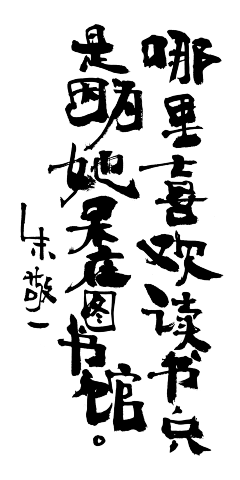 哪里喜欢读书只
是因为她呆在图书馆。
朱敬一